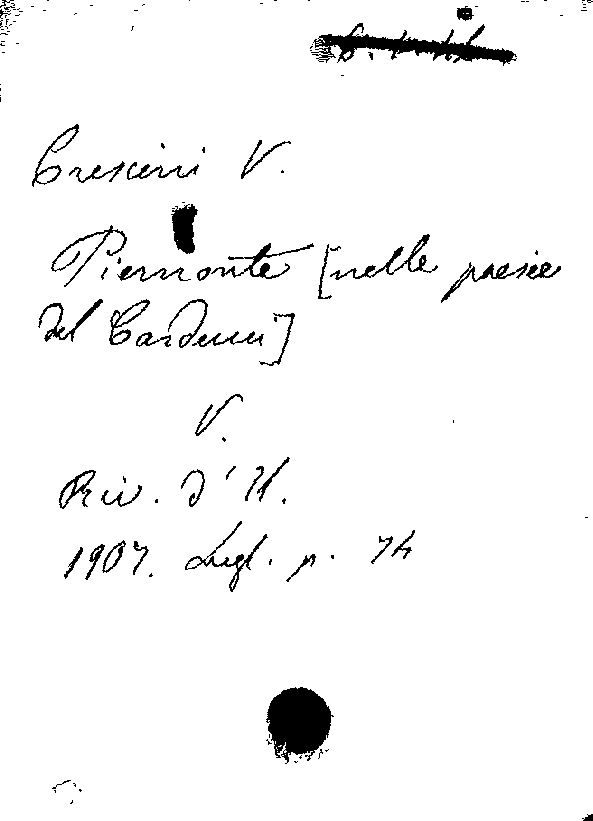 Crescini V.
Piemonte [nelle poesie
del Carducci]
V.
Riv. d'It.
1907. Lugl. p. 74